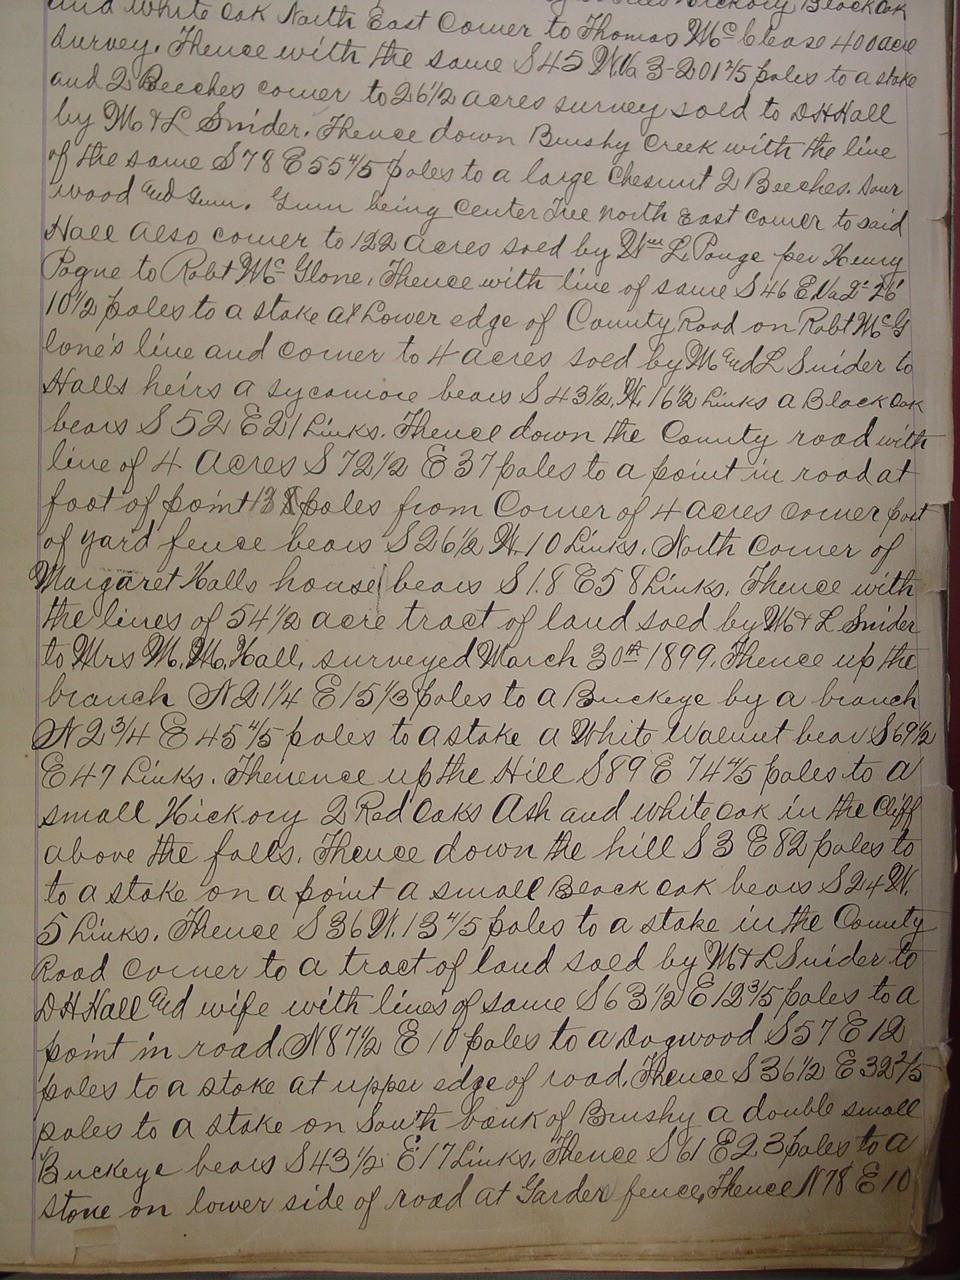 and White Oak North East Corner to Thomas Mc Clease 400 acre
survey. Thence with the same S 45 W Va 3 - 201 2/5 poles to a stake
and 2 Beeches corner to 26 1/2 acres survey sold to D H Hall
by M & L Snider. Thence down Brushy Creek with the line
of the same S 78 E 55 4/5 poles to a large Chesnut 2 Beeches. Sour
wood and Gum. Gum being Center Tree North East corner to said
Hall also corner to 122 acres sold by Wm L Pouge per Henry
Pogue to Robt Mc Glone. Thence with line of same S 46 E Va 2° 26'
10 1/2 poles to a stake at Lower edge of County Road on Robt Mc G
lone's line and corner to 4 acres sold by M and L Snider to
Halls heirs a sycamore bears S 43 1/2 W. 16 1/2 Links a Black Oak
bears S 52 E 21 Links. Thence down the County road with
line of 4 Acres S 72 1/2 E 37 poles to a point in road at
foot of point 13 poles from Corner of 4 acres corner post
of yard fence bears S 26 1/2 W. 10 Links. North Corner of
Margaret Halls house bears S 18 E 58 Links. Thence with
the lines of 54 1/2 acre tract of land sold by M & L Snider
to Mrs M. M. Hall, surveyed March 30th 1899. Thence up the
branch N 21 1/4 E 15 1/3 poles to a Buckeye by a branch
N 2 3/4 E 45 4/5 poles to a stake a White Walnut bear S 69 1/2
E 47 Links. Therence up the Hill S 89 E 74 4/5 poles to a
small Hickory 2 Red Oaks Ash and white oak in the Cliff
above the falls. Thence down the hill S 3 E 82 poles to
to a stake on a point a small Black oak bears S 24 W.
5 Links. Thence S 36 W. 13 4/5 poles to a stake in the County
Road corner to a tract of land sold by M & L Snider to
D H Hall and wife with lines of same S 63 1/2 E 12 3/5 poles to a
point in road. N 87 1/2 E 10 poles to a Dogwood S 57 E 12
poles to a stake at upper edge of road. Thence S 36 1/2 E 32 2/5
poles to a stake on South bank of Brushy a double small
Buckeye bears S 43 1/2 E 17 Links, Thence S 61 E 23 poles to a
stone on lower side of road at Garden fence, Thence N 78 E 10